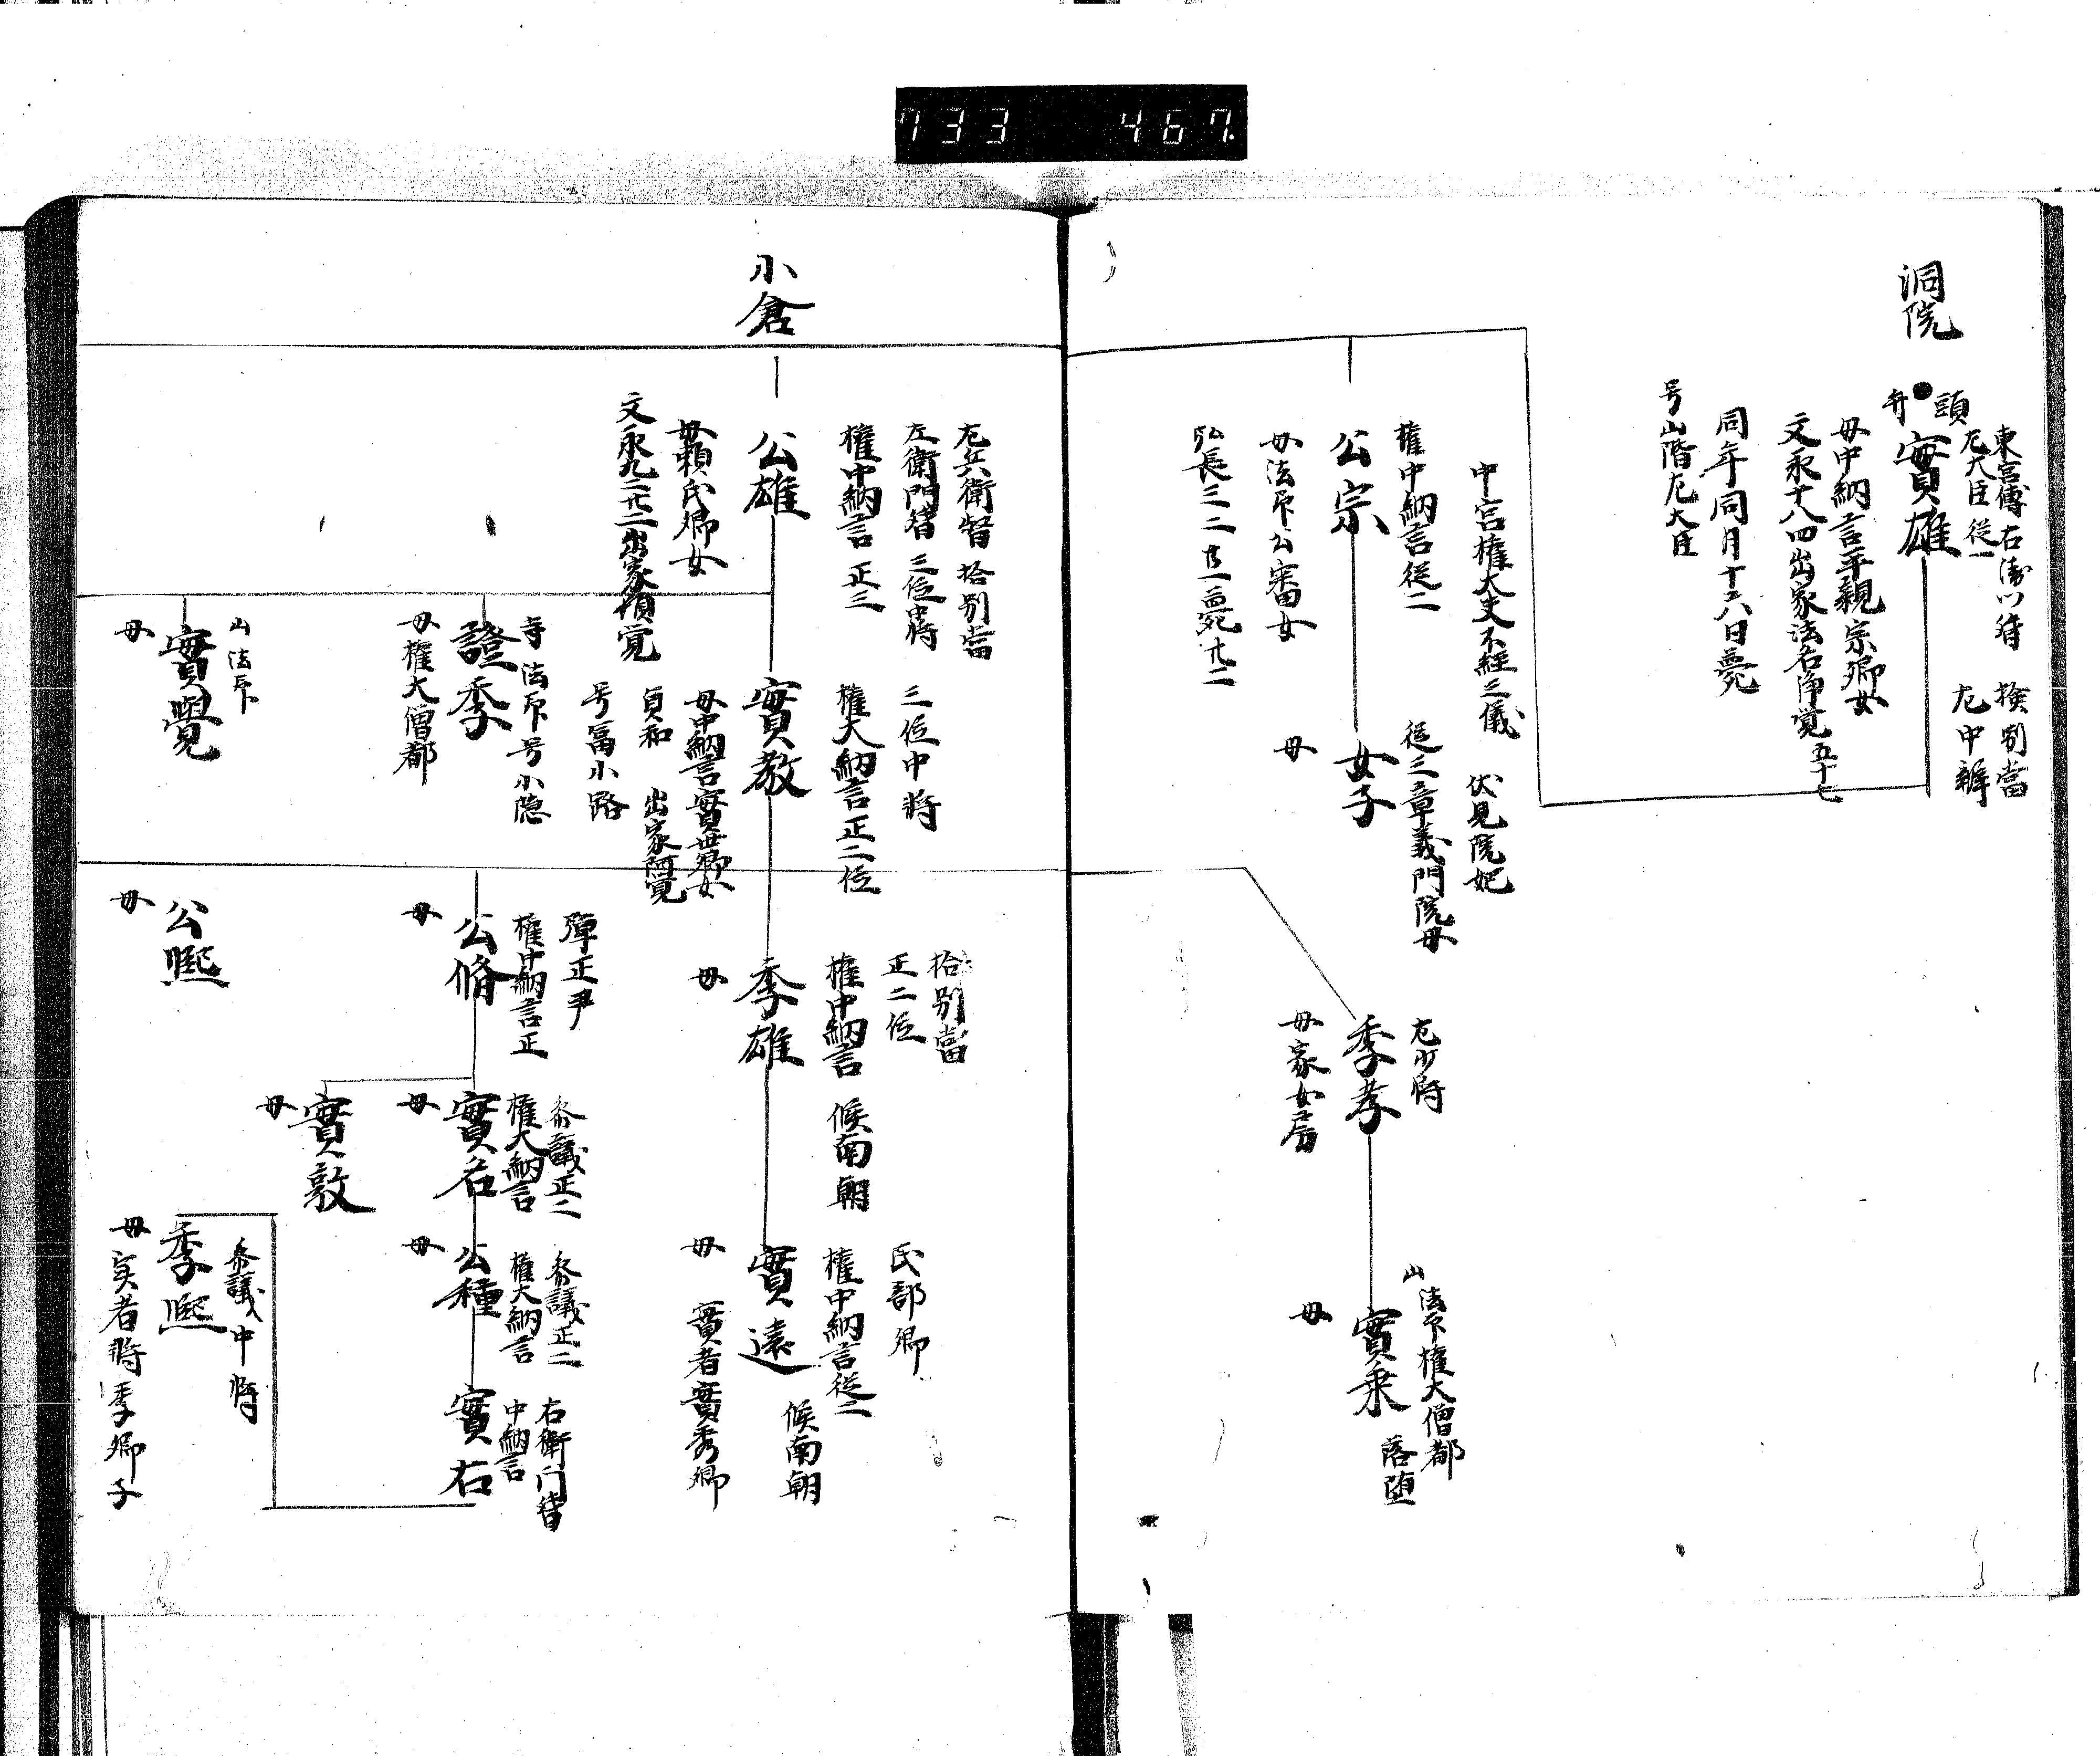 733 467.
洞院
頭
弁
東宮傅 右
左大臣従一
検別當
左中辨
實雄
母中納言平親宗卿女
文永十八四出家法名浄覚五十七
同年同月十六八日薨
号山階左大臣
中宮権大夫不経三儀
権中納言従二
公宗
母法印公審女
弘長三二廿一薨廿二
伏見院妃
従三章義門院母
女子
母
左少将
季孝
母家女房
山法印権大僧都
落堕
實乗
母
小倉
左兵衛督 検別當
左衛門督 三位中将
権中納言正三
公雄
母頼氏卿女
文永九二廿二出家頓覚
三位中将
権大納言正二位
實教
母中納言實世卿女
貞和 出家阿覚
号冨小路
寺法印号小隠
證季
母権大僧都
山法印
實覺
母
検別當
正二位
権中納言 候南朝
季雄
母
民部卿
権中納言従二
候南朝
實遠
母 實者實秀卿
弾正尹
権中納言正
公脩
母
参議正二
権大納言
實名
母
實敦
母
参議正二
権大納言
公種
母
右衛门督
中納言
實右
参議中将
季熈
母実者将季卿子
公熈
母